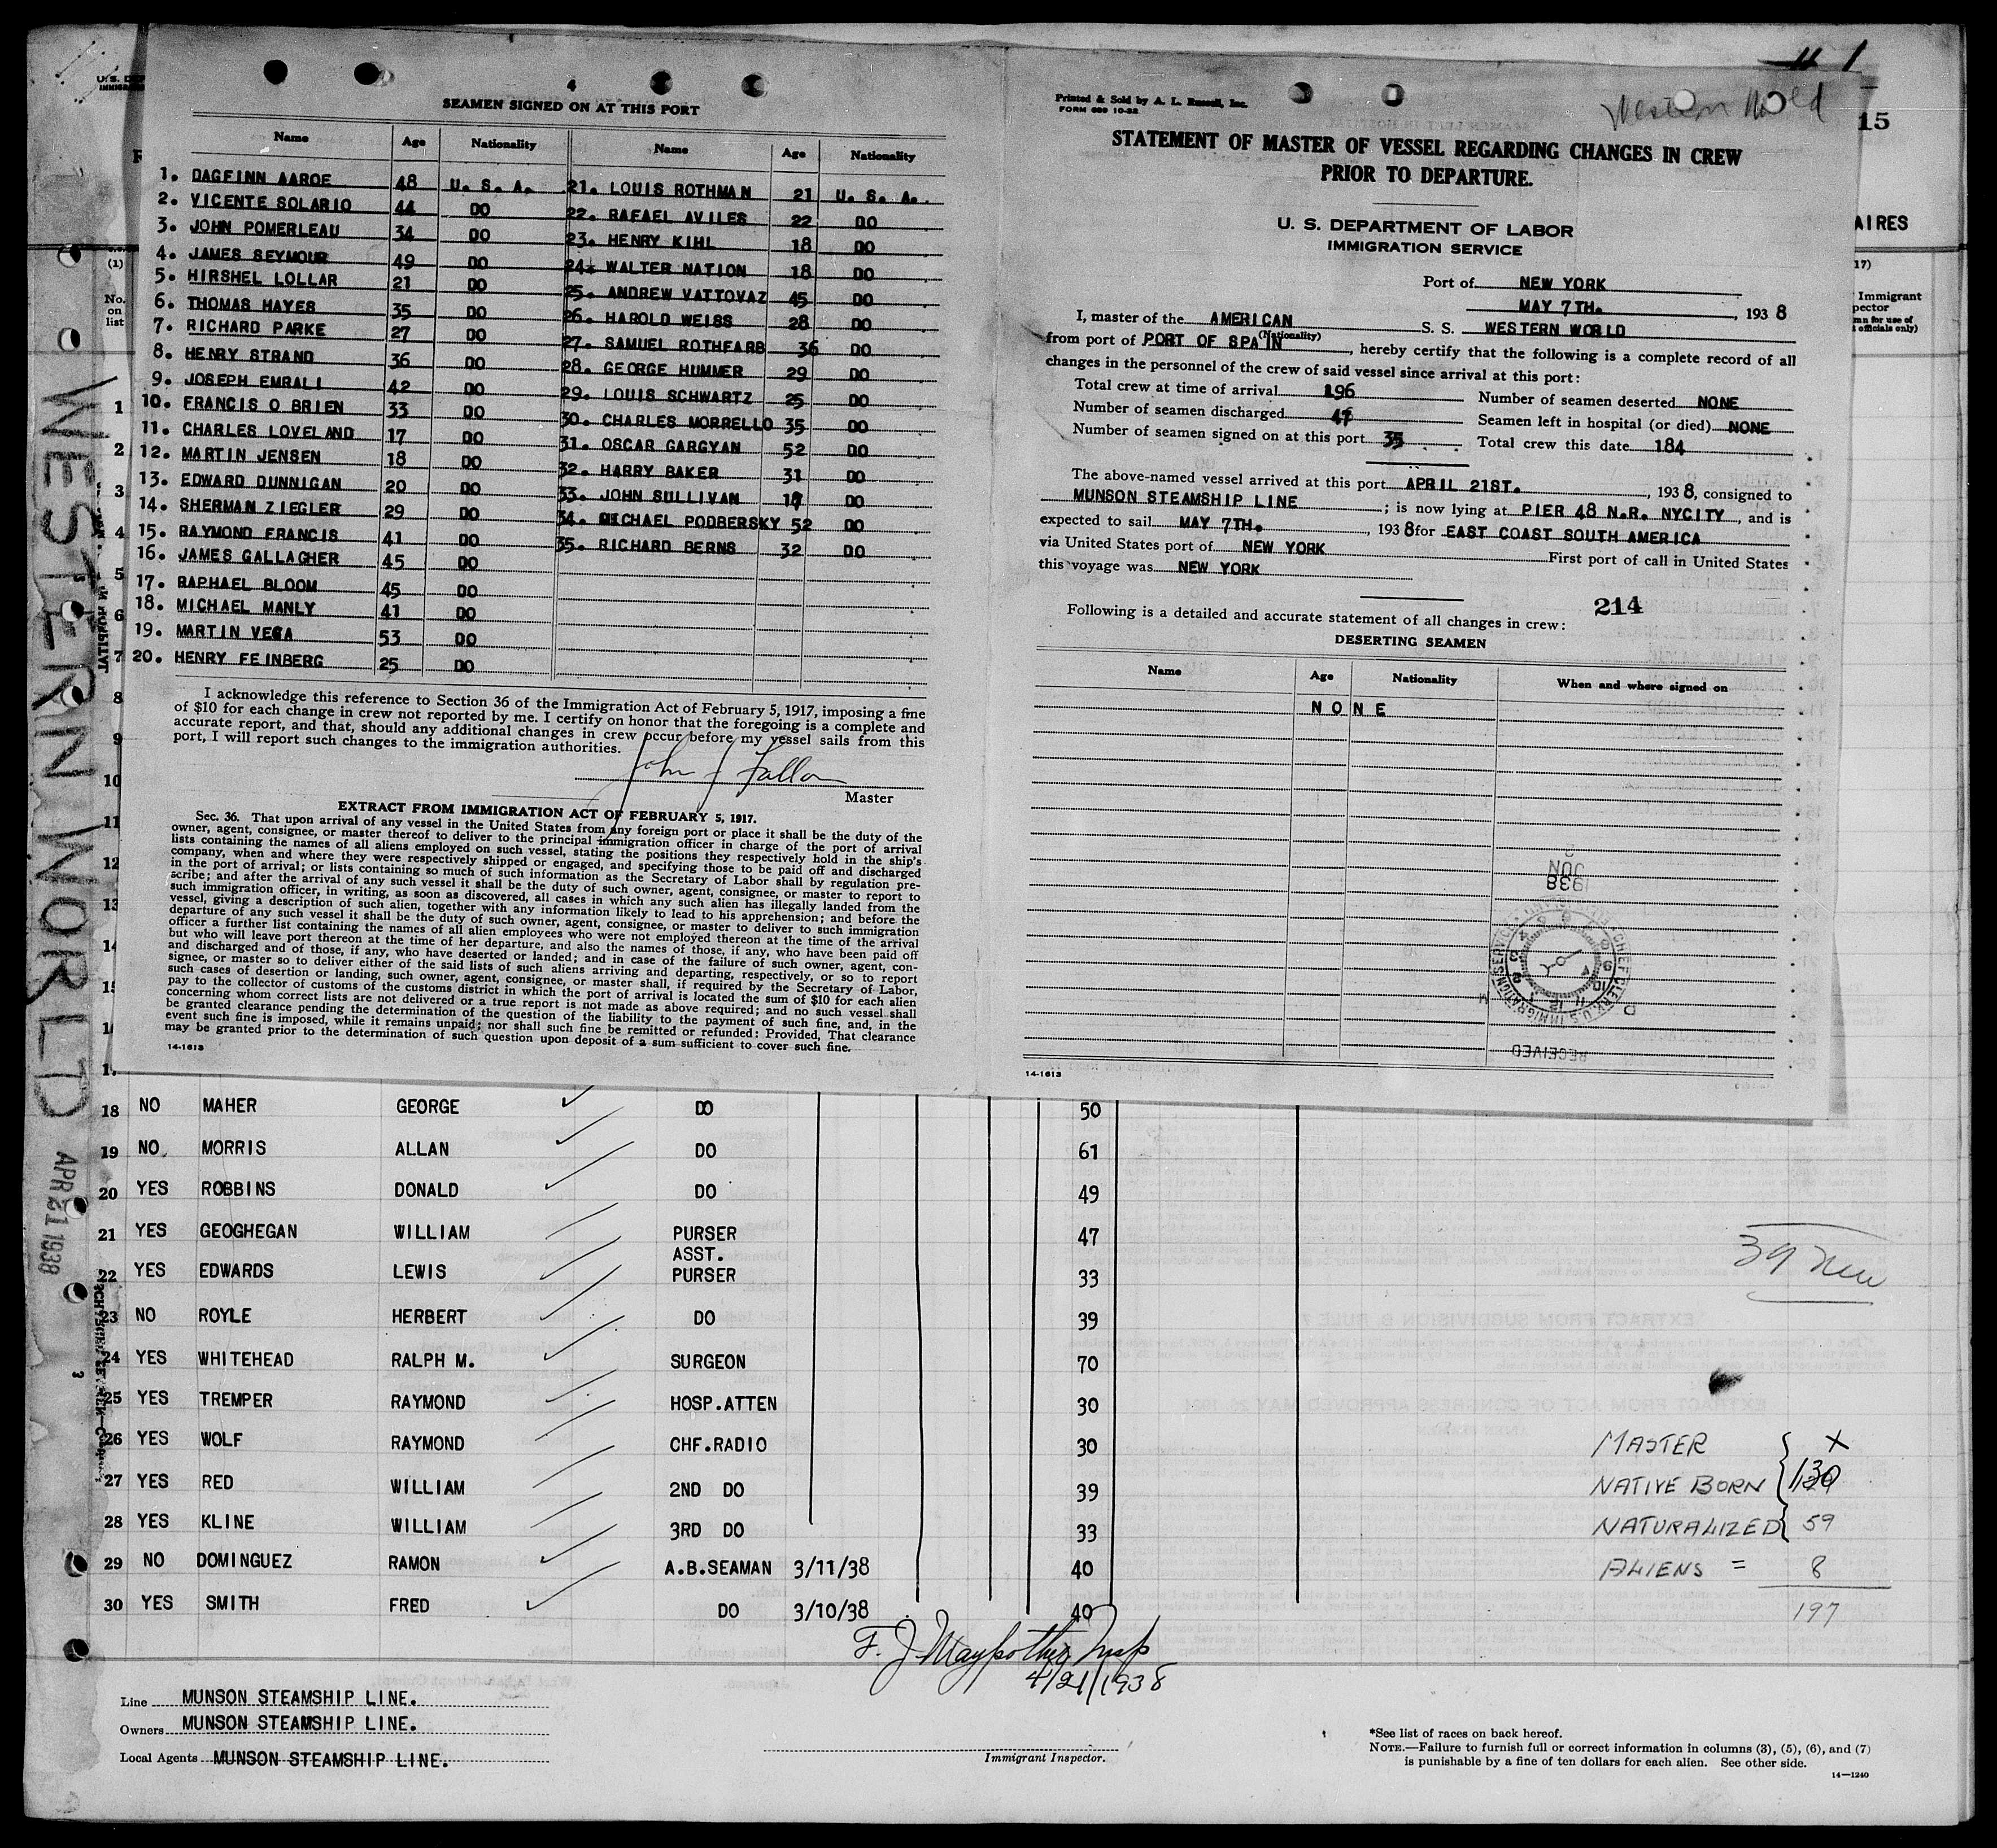 4
SEAMEN SIGNED ON AT THIS PORT
Name Age Nationality Name Age Nationality
1. DAGFINN AAROE 48 U. S. A. 21. LOUIS ROTHMAN 21 U. S. A.
2. VICENTE SOLARIO 44 DO 22. RAFAEL AVILES 22 DO
3. JOHN POMERLEAU 34 DO 23. HENRY KIHL 18 DO
4. JAMES SEYMOUR 49 DO 24. WALTER NATION 18 DO
5. HIRSHEL LOLLAR 21 DO 25. ANDREW VATTOVAZ 45 DO
6. THOMAS HAYES 35 DO 26. HAROLD WEISS 28 DO
7. RICHARD PARKE 27 DO 27. SAMUEL ROTHFARB 36 DO
8. HENRY STRAND 36 DO 28. GEORGE HUMMER 29 DO
9. JOSEPH EMRALI 42 DO 29. LOUIS SCHWARTZ 25 DO
10. FRANCIS O BRIEN 33 DO 30. CHARLES MORRELLO 35 DO
11. CHARLES LOVELAND 17 DO 31. OSCAR GARGYAN 52 DO
12. MARTIN JENSEN 18 DO 32. HARRY BAKER 31 DO
13. EDWARD DUNNIGAN 20 DO 33. JOHN SULLIVAN DO
14. SHERMAN ZIEGLER 29 DO 34. MICHAEL PODBERSKY 52 DO
15. RAYMOND FRANCIS 41 DO 35. RICHARD BERNS 32 DO
16. JAMES GALLAGHER 45 DO
17. RAPHAEL BLOOM 45 DO
18. MICHAEL MANLY 41 DO
19. MARTIN VEGA 53 DO
20. HENRY FEINBERG 25 DO
I acknowledge this reference to Section 36 of the Immigration Act of February 5, 1917, imposing a fine
of $10 for each change in crew not reported by me. I certify on honor that the foregoing is a complete and
accurate report, and that, should any additional changes in crew occur before my vessel sails from this
port, I will report such changes to the immigration authorities.
John J Fallon
Master
EXTRACT FROM IMMIGRATION ACT OF FEBRUARY 5, 1917.
Sec. 36. That upon arrival of any vessel in the United States from any foreign port or place it shall be the duty of the
owner, agent, consignee, or master thereof to deliver to the principal immigration officer in charge of the port of arrival
lists containing the names of all aliens employed on such vessel, stating the positions they respectively hold in the ship's
company, when and where they were respectively shipped or engaged, and specifying those to be paid off and discharged
in the port of arrival; or lists containing so much of such information as the Secretary of Labor shall by regulation pre-
scribe; and after the arrival of any such vessel it shall be the duty of such owner, agent, consignee, or master to report to
such immigration officer, in writing, as soon as discovered, all cases in which any such alien has illegally landed from the
vessel, giving a description of such alien, together with any information likely to lead to his apprehension; and before the
departure of any such vessel it shall be the duty of such owner, agent, consignee, or master to deliver to such immigration
officer a further list containing the names of all alien employees who were not employed thereon at the time of the arrival
but who will leave port thereon at the time of her departure, and also the names of those, if any, who have been paid off
and discharged and of those, if any, who have deserted or landed; and in case of the failure of such owner, agent, con-
signee, or master so to deliver either of the said lists of such aliens arriving and departing, respectively, or so to report
such cases of desertion or landing, such owner, agent, consignee, or master shall, if required by the Secretary of Labor,
pay to the collector of customs of the customs district in which the port of arrival is located the sum of $10 for each alien
concerning whom correct lists are not delivered or a true report is not made as above required; and no such vessel shall
be granted clearance pending the determination of the question of the liability to the payment of such fine, and, in the
event such fine is imposed, while it remains unpaid; nor shall such fine be remitted or refunded: Provided, That clearance
may be granted prior to the determination of such question upon deposit of a sum sufficient to cover such fine.
14-1613
Printed & Sold by A. L. Russell, Inc.
FORM 689 10-32
Western World
15
STATEMENT OF MASTER OF VESSEL REGARDING CHANGES IN CREW
PRIOR TO DEPARTURE.
U. S. DEPARTMENT OF LABOR
IMMIGRATION SERVICE
Port of NEW YORK
MAY 7TH., 1938
I, master of the AMERICAN S. S. WESTERN WORLD
(Nationality)
from port of PORT OF SPAIN, hereby certify that the following is a complete record of all
changes in the personnel of the crew of said vessel since arrival at this port:
Total crew at time of arrival 196 Number of seamen deserted NONE
Number of seamen discharged 47 Seamen left in hospital (or died) NONE
Number of seamen signed on at this port 35 Total crew this date 184
The above-named vessel arrived at this port APRIL 21ST., 1938, consigned to
MUNSON STEAMSHIP LINE; is now lying at PIER 48 N.R. NYCITY, and is
expected to sail MAY 7TH., 1938 for EAST COAST SOUTH AMERICA
via United States port of NEW YORK First port of call in United States
this voyage was NEW YORK
214
Following is a detailed and accurate statement of all changes in crew:
DESERTING SEAMEN
Name Age Nationality When and where signed on
NONE
2
JUN
1938
RECEIVED
14-1613
AIRES
17)
Immigrant
(1)
No.
on
list
WESTERN WORLD
APR 21 1938
18 NO MAHER GEORGE DO 50
19 NO MORRIS ALLAN DO 61
20 YES ROBBINS DONALD DO 49
21 YES GEOGHEGAN WILLIAM PURSER 47
22 YES EDWARDS LEWIS ASST. PURSER 33
23 NO ROYLE HERBERT DO 39
24 YES WHITEHEAD RALPH M. SURGEON 70
25 YES TREMPER RAYMOND HOSP.ATTEN 30
26 YES WOLF RAYMOND CHF.RADIO 30
27 YES RED WILLIAM 2ND DO 39
28 YES KLINE WILLIAM 3RD DO 33
29 NO DOMINGUEZ RAMON A.B.SEAMAN 3/11/38 40
30 YES SMITH FRED DO 3/10/38 40
39 new
MASTER X
NATIVE BORN 130
NATURALIZED 59
ALIENS = 8
197
4/21/1938
Line MUNSON STEAMSHIP LINE.
Owners MUNSON STEAMSHIP LINE.
Local Agents MUNSON STEAMSHIP LINE.
Immigrant Inspector.
*See list of races on back hereof.
NOTE.—Failure to furnish full or correct information in columns (3), (5), (6), and (7)
is punishable by a fine of ten dollars for each alien. See other side.
14-1240